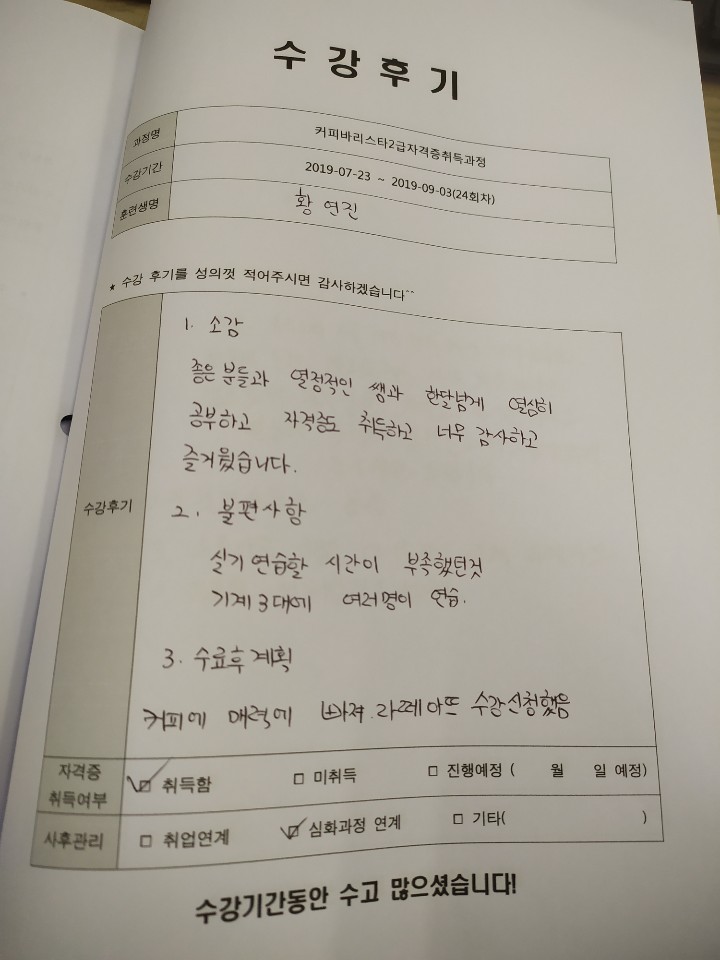 수강후기
과정명 커피바리스타2급자격증취득과정
수강기간 2019-07-23 ~ 2019-09-03(24회차)
훈련생명 황연진
★ 수강 후기를 성의껏 적어주시면 감사하겠습니다^^
수강후기
1. 소감
좋은 분들과 열정적인 쌤과 한달넘게 열심히
공부하고 자격증도 취득하고 너무 감사하고
즐거웠습니다.
2. 불편사항
실기 연습할 시간이 부족했던것
기계 3대에 여러명이 연습.
3. 수료후 계획
커피에 매력에 빠져. 라떼아뜨 수강신청했음
자격증 취득여부 ☑ 취득함 □ 미취득 □ 진행예정 ( 월 일 예정)
사후관리 □ 취업연계 ☑ 심화과정 연계 □ 기타( )
수강기간동안 수고 많으셨습니다!